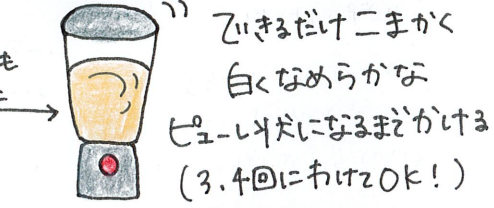 できるだけこまかく
白くなめらかな
ピューレ状になるまでかける
(3.4回にわけてOK!)
も